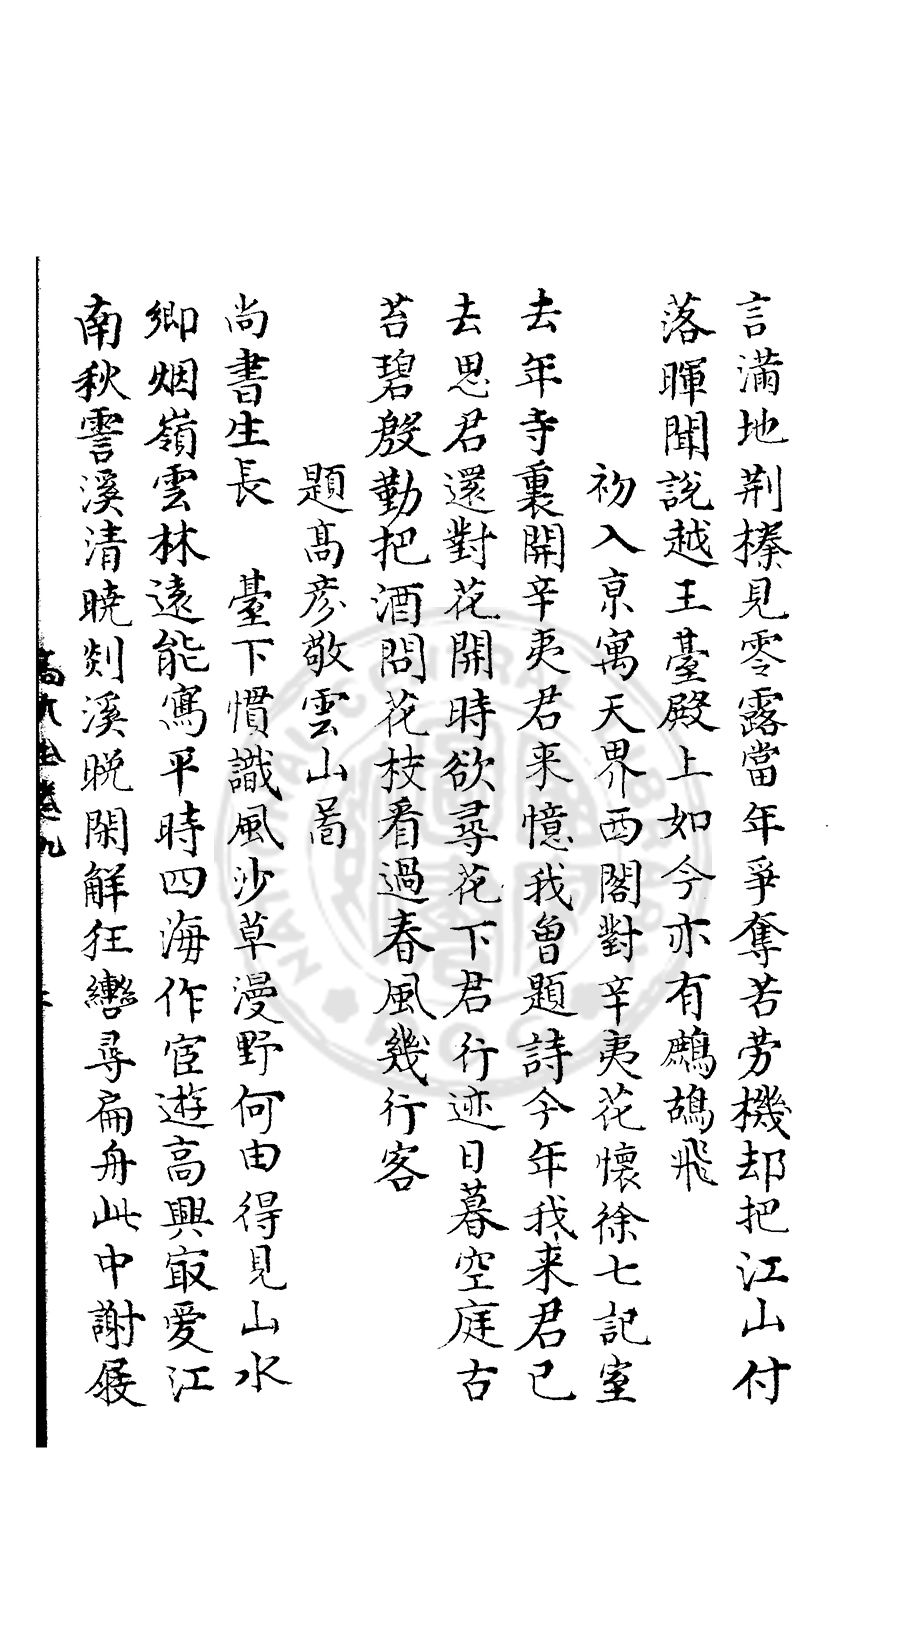 言滿地荆榛見零露當年爭奪苦劳機却把江山付
落暉聞説越王臺殿上如今亦有鷓鴣飛
初入亰寓天界西閣對辛夷花懷徐七記室
去年寺裏開辛夷君来憶我曽題詩今年我来君已
去思君還對花開時欲尋花下君行迹日暮空庭古
苔碧殷勤把酒問花枝看過春風幾行客
題髙彦敬雲山啚
尚書生長 臺下慣識風沙草漫野何由得見山水
卿烟嶺雲林遠能寫平時四海作宦遊高興㝡愛江
南秋霅溪清曉剡溪晚閑解狂轡尋扁舟此中謝屐